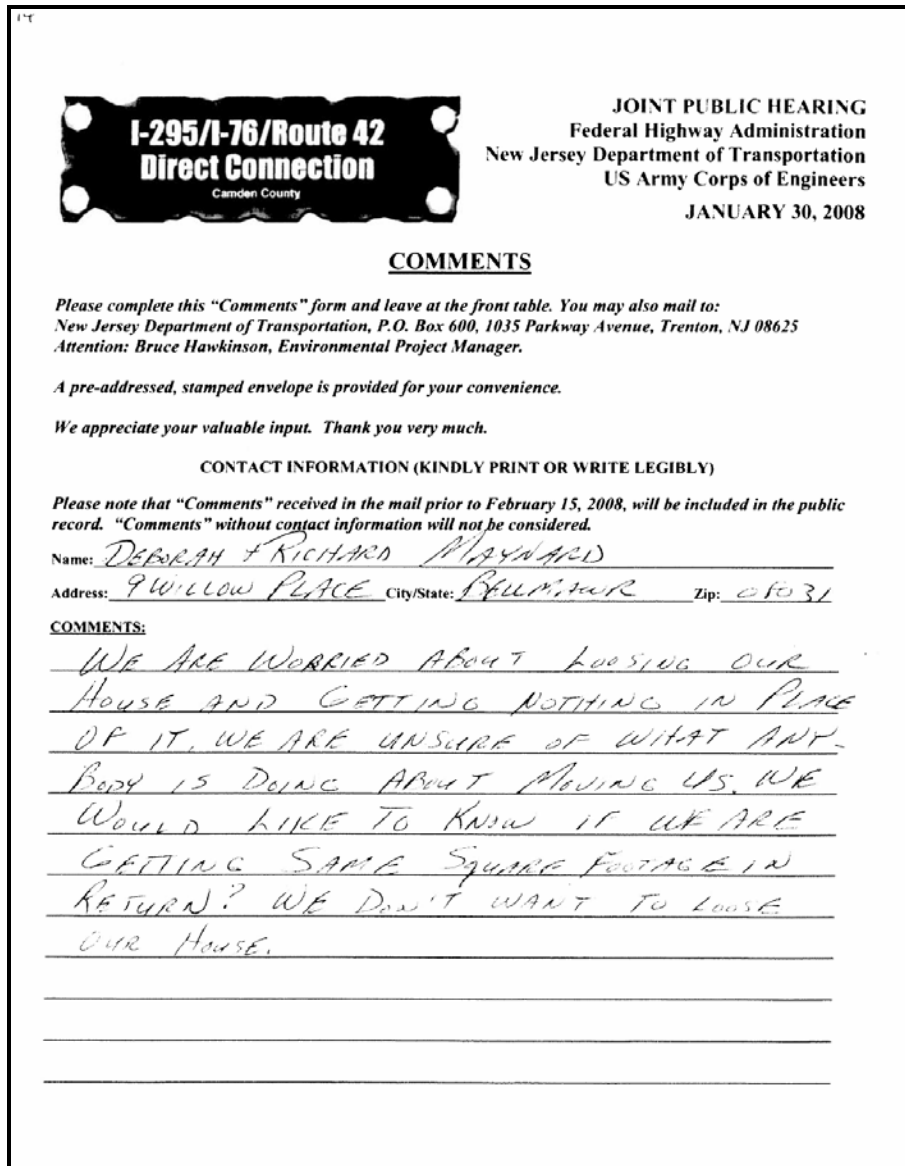 14
I-295/I-76/Route 42
Direct Connection
Camden County
JOINT PUBLIC HEARING
Federal Highway Administration
New Jersey Department of Transportation
US Army Corps of Engineers
JANUARY 30, 2008
COMMENTS
Please complete this "Comments" form and leave at the front table. You may also mail to:
New Jersey Department of Transportation, P.O. Box 600, 1035 Parkway Avenue, Trenton, NJ 08625
Attention: Bruce Hawkinson, Environmental Project Manager.
A pre-addressed, stamped envelope is provided for your convenience.
We appreciate your valuable input. Thank you very much.
CONTACT INFORMATION (KINDLY PRINT OR WRITE LEGIBLY)
Please note that "Comments" received in the mail prior to February 15, 2008, will be included in the public
record. "Comments" without contact information will not be considered.
Name: DEBORAH + RICHARD MAYNARD
Address: 9 WILLOW PLACE City/State: BELLMAWR Zip: 08031
COMMENTS:
WE ARE WORRIED ABOUT LOOSING OUR
HOUSE AND GETTING NOTHING IN PLACE
OF IT. WE ARE UNSURE OF WHAT ANY-
BODY IS DOING ABOUT MOVING US. WE
WOULD LIKE TO KNOW IF WE ARE
GETTING SAME SQUARE FOOTAGE IN
RETURN? WE DON'T WANT TO LOOSE
OUR HOUSE.